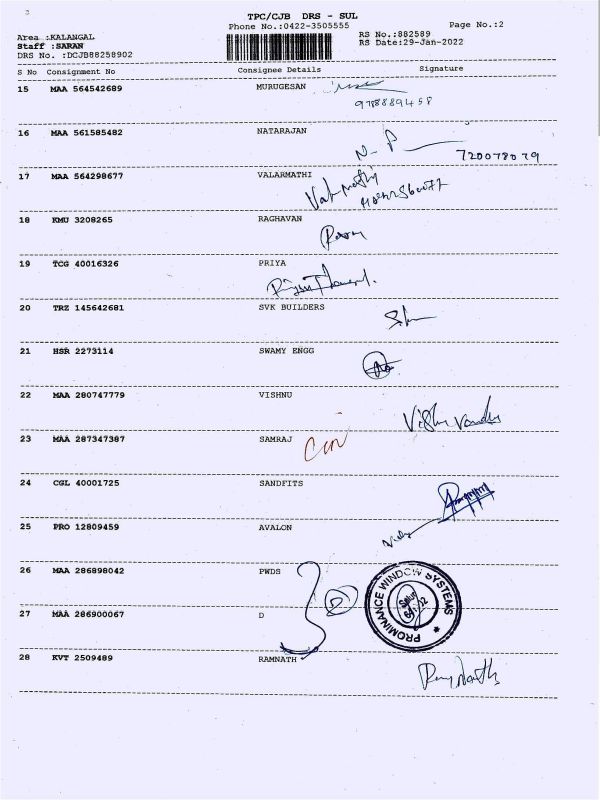 TPC/CJB DRS - SUL
Phone No.:0422-3505555 Page No.:2
Area :KALANGAL RS No.:882589
Staff :SARAN RS Date:29-Jan-2022
DRS No. :DCJB88258902
S No Consignment No Consignee Details Signature
15 MAA 564542689 MURUGESAN
9788889458
16 MAA 561585482 NATARAJAN
N-P
720078079
17 MAA 564298677 VALARMATHI
18 KMU 3208265 RAGHAVAN
19 TCG 40016326 PRIYA
20 TRZ 145642681 SVK BUILDERS
21 HSR 2273114 SWAMY ENGG
22 MAA 280747779 VISHNU
23 MAA 287347387 SAMRAJ
24 CGL 40001725 SANDFITS
25 PRO 12809459 AVALON
26 MAA 286898042 PWDS
PROMINANCE WINDOW SYSTEMS
27 MAA 286900067 D
28 KVT 2509489 RAMNATH